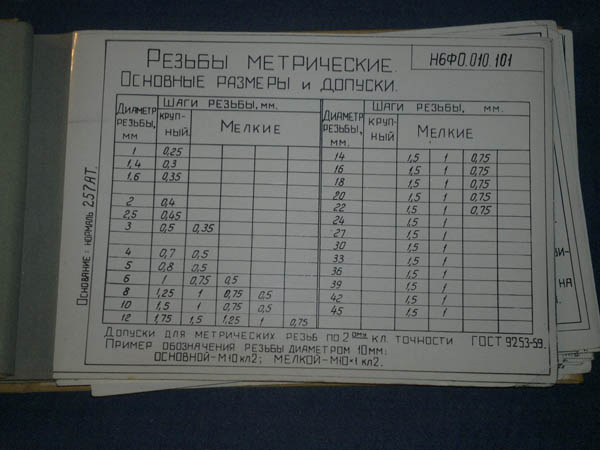 Резьбы метрические.
Основные размеры и допуски.
Н6Ф0.010.101
Основание: нормаль 257АТ.
Диаметр резьбы, мм | Шаги резьбы, мм.
Крупный. | Мелкие
1 | 0,25
1,4 | 0,3
1,6 | 0,35
2 | 0,4
2,5 | 0,45
3 | 0,5 | 0,35
4 | 0,7 | 0,5
5 | 0,8 | 0,5
6 | 1 | 0,75 | 0,5
8 | 1,25 | 1 | 0,75 | 0,5
10 | 1,5 | 1 | 0,75 | 0,5
12 | 1,75 | 1,5 | 1,25 | 1 | 0,75
Диаметр резьбы, мм. | Шаги резьбы, мм.
Крупный | Мелкие
14 | 1,5 | 1 | 0,75
16 | 1,5 | 1 | 0,75
18 | 1,5 | 1 | 0,75
20 | 1,5 | 1 | 0,75
22 | 1,5 | 1 | 0,75
24 | 1,5 | 1
27 | 1,5 | 1
30 | 1,5 | 1
33 | 1,5 | 1
36 | 1,5 | 1
39 | 1,5 | 1
42 | 1,5 | 1
45 | 1,5 | 1
Допуски для метрических резьб по 2ому кл. точности ГОСТ 9253-59.
Пример обозначения резьбы диаметром 10мм:
основной-М10кл2; мелкой-М10×1 кл2.